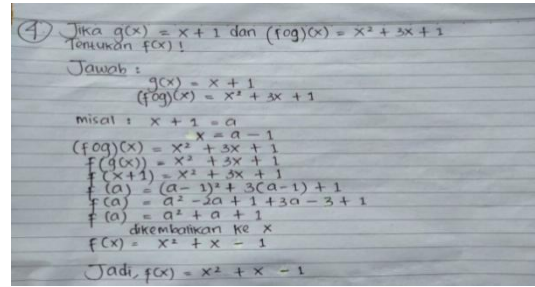 ④ Jika g(x) = x + 1 dan (fog)(x) = x² + 3x + 1
Tentukan f(x) !
Jawab :
g(x) = x + 1
(fog)(x) = x² + 3x + 1
misal : x + 1 = a
x = a - 1
(fog)(x) = x² + 3x + 1
f(g(x)) = x² + 3x + 1
f(x+1) = x² + 3x + 1
f(a) = (a - 1)² + 3(a - 1) + 1
f(a) = a² - 2a + 1 + 3a - 3 + 1
f(a) = a² + a + 1
dikembalikan ke x
f(x) = x² + x - 1
Jadi, f(x) = x² + x - 1